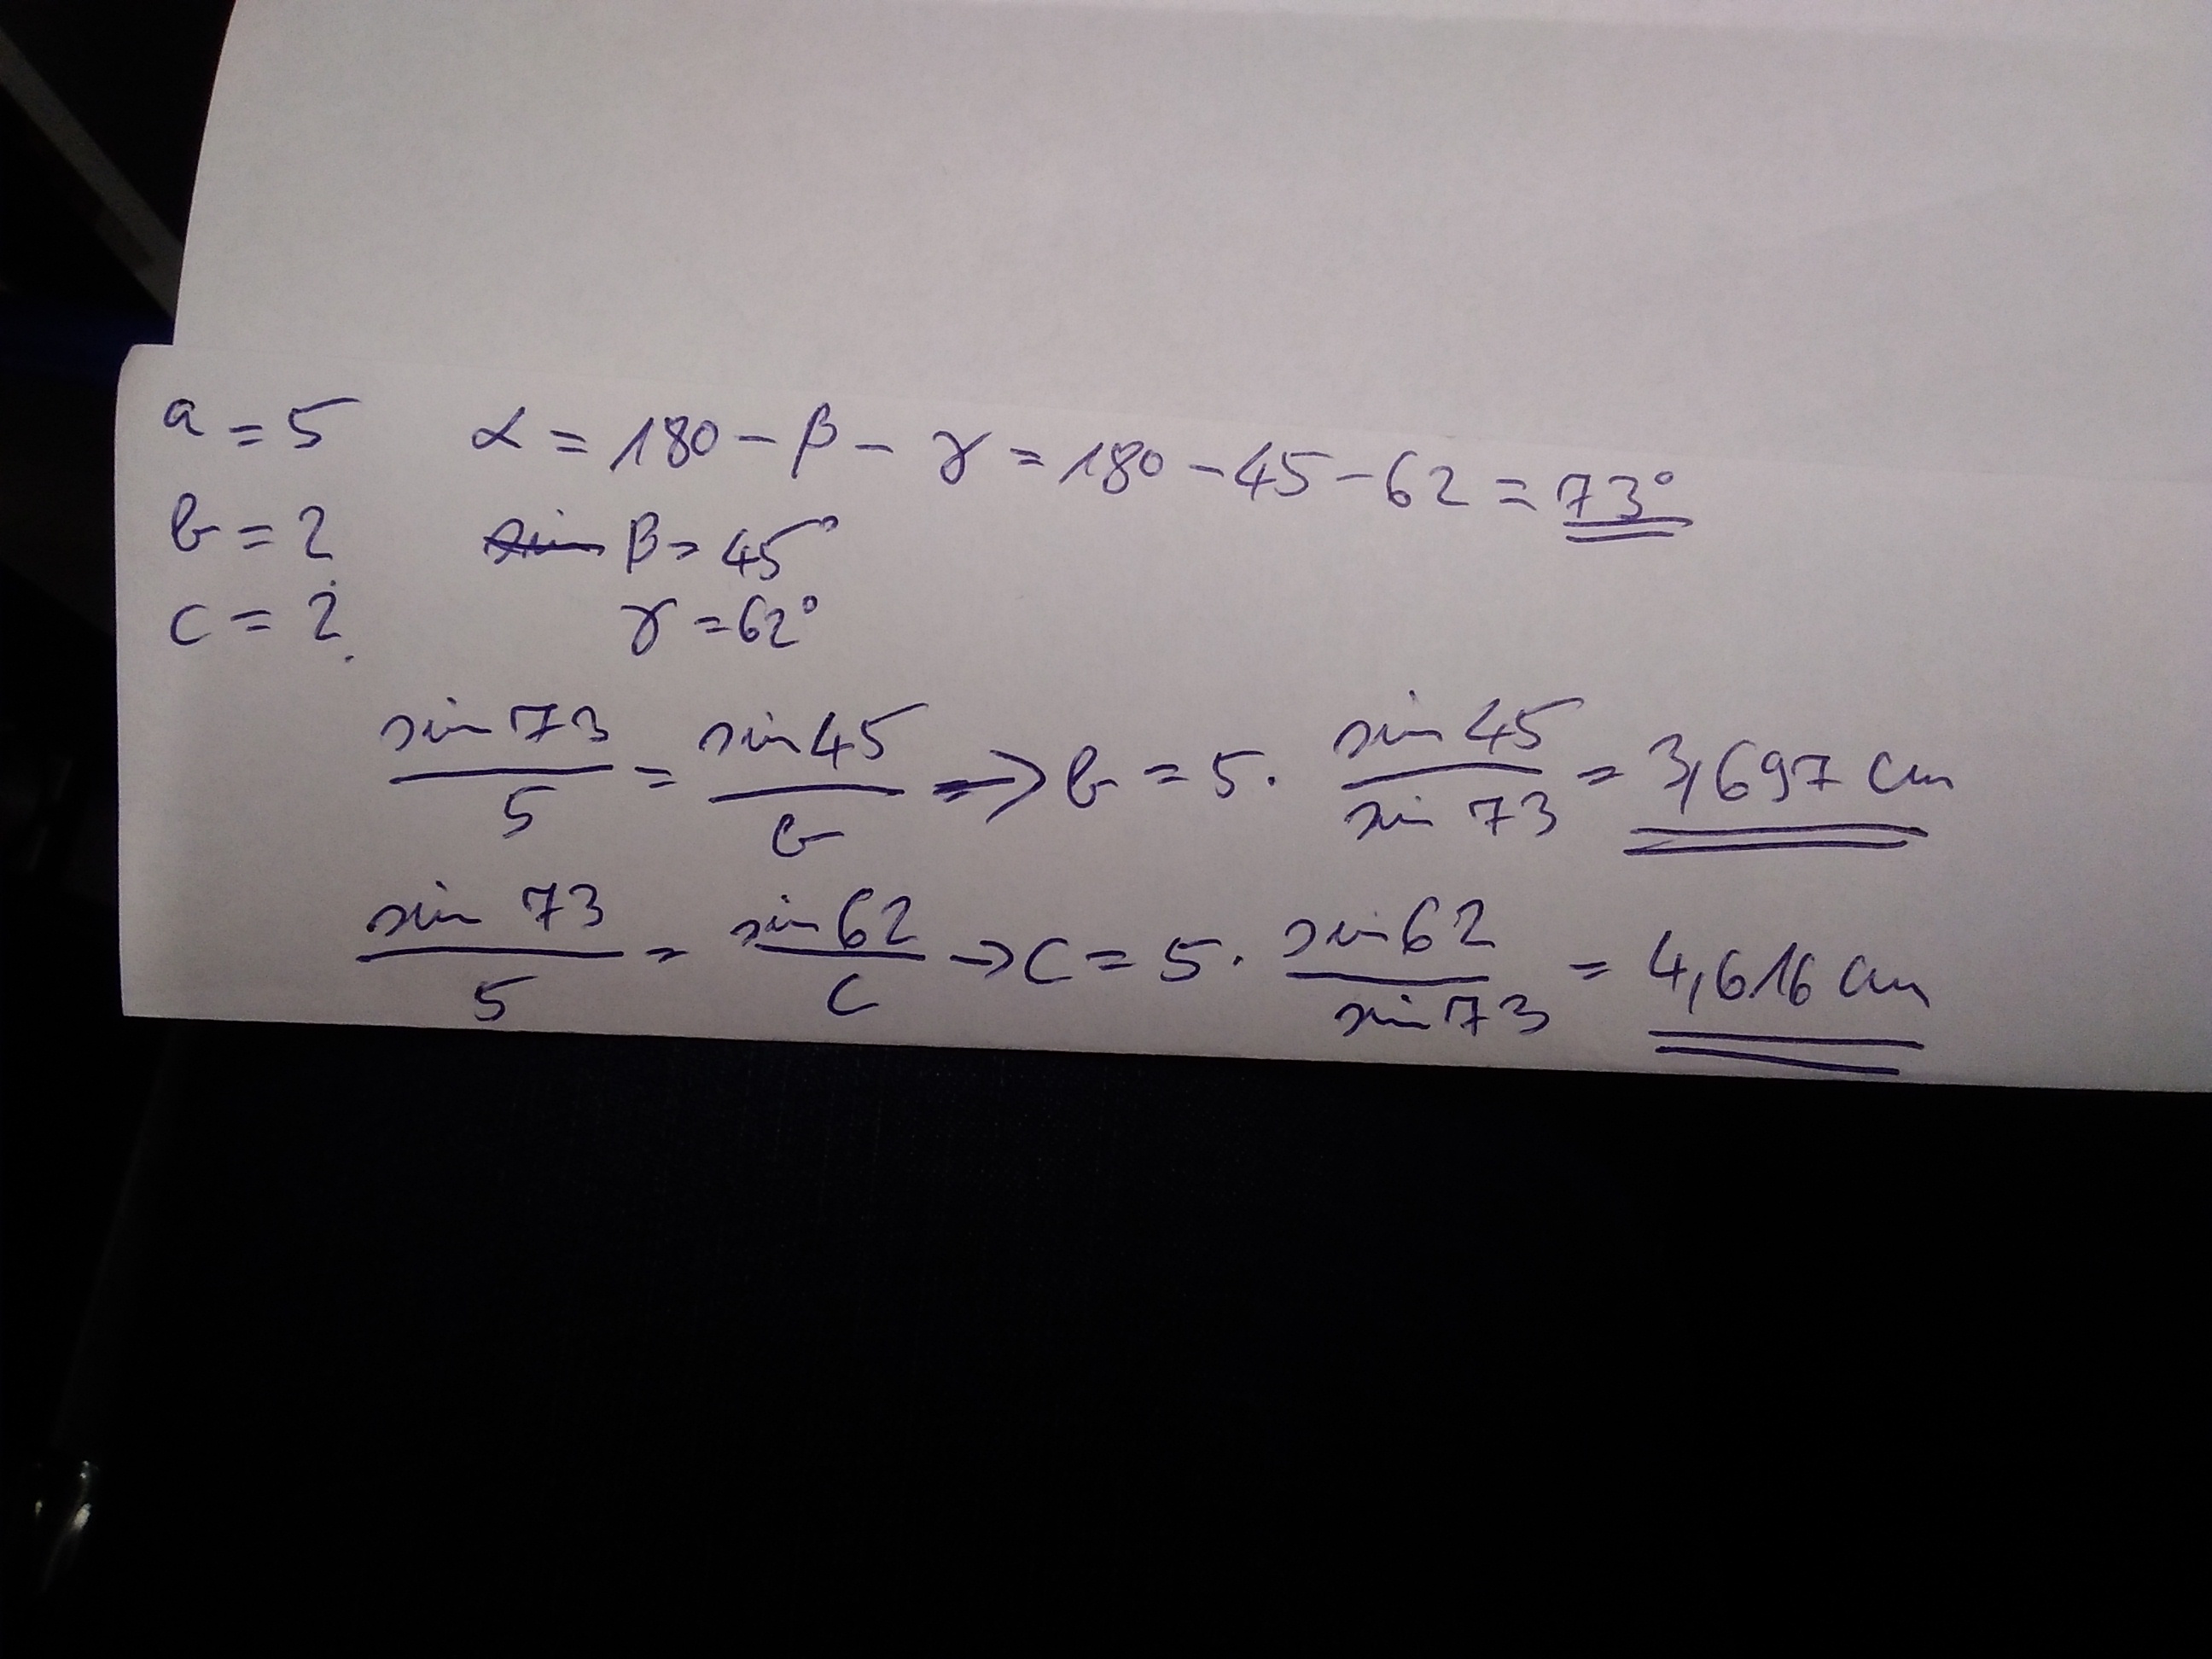 a = 5 α = 180 - β - γ = 180 - 45 - 62 = 73°
b = ? β = 45°
c = ? γ = 62°
sin 73 / 5 = sin 45 / b => b = 5 · sin 45 / sin 73 = 3,697 cm
sin 73 / 5 = sin 62 / c → c = 5 · sin 62 / sin 73 = 4,616 cm